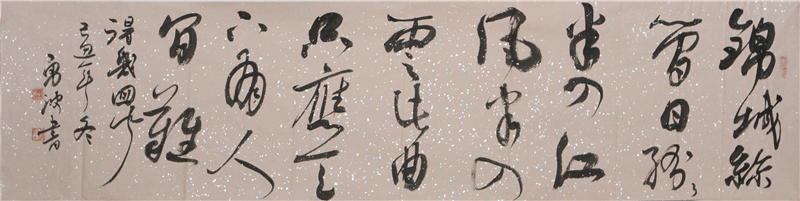 錦城絲
管日紛紛
半入江
風半入
雲此曲
只應天
上有人
間難
得幾回聞
己丑年冬
書